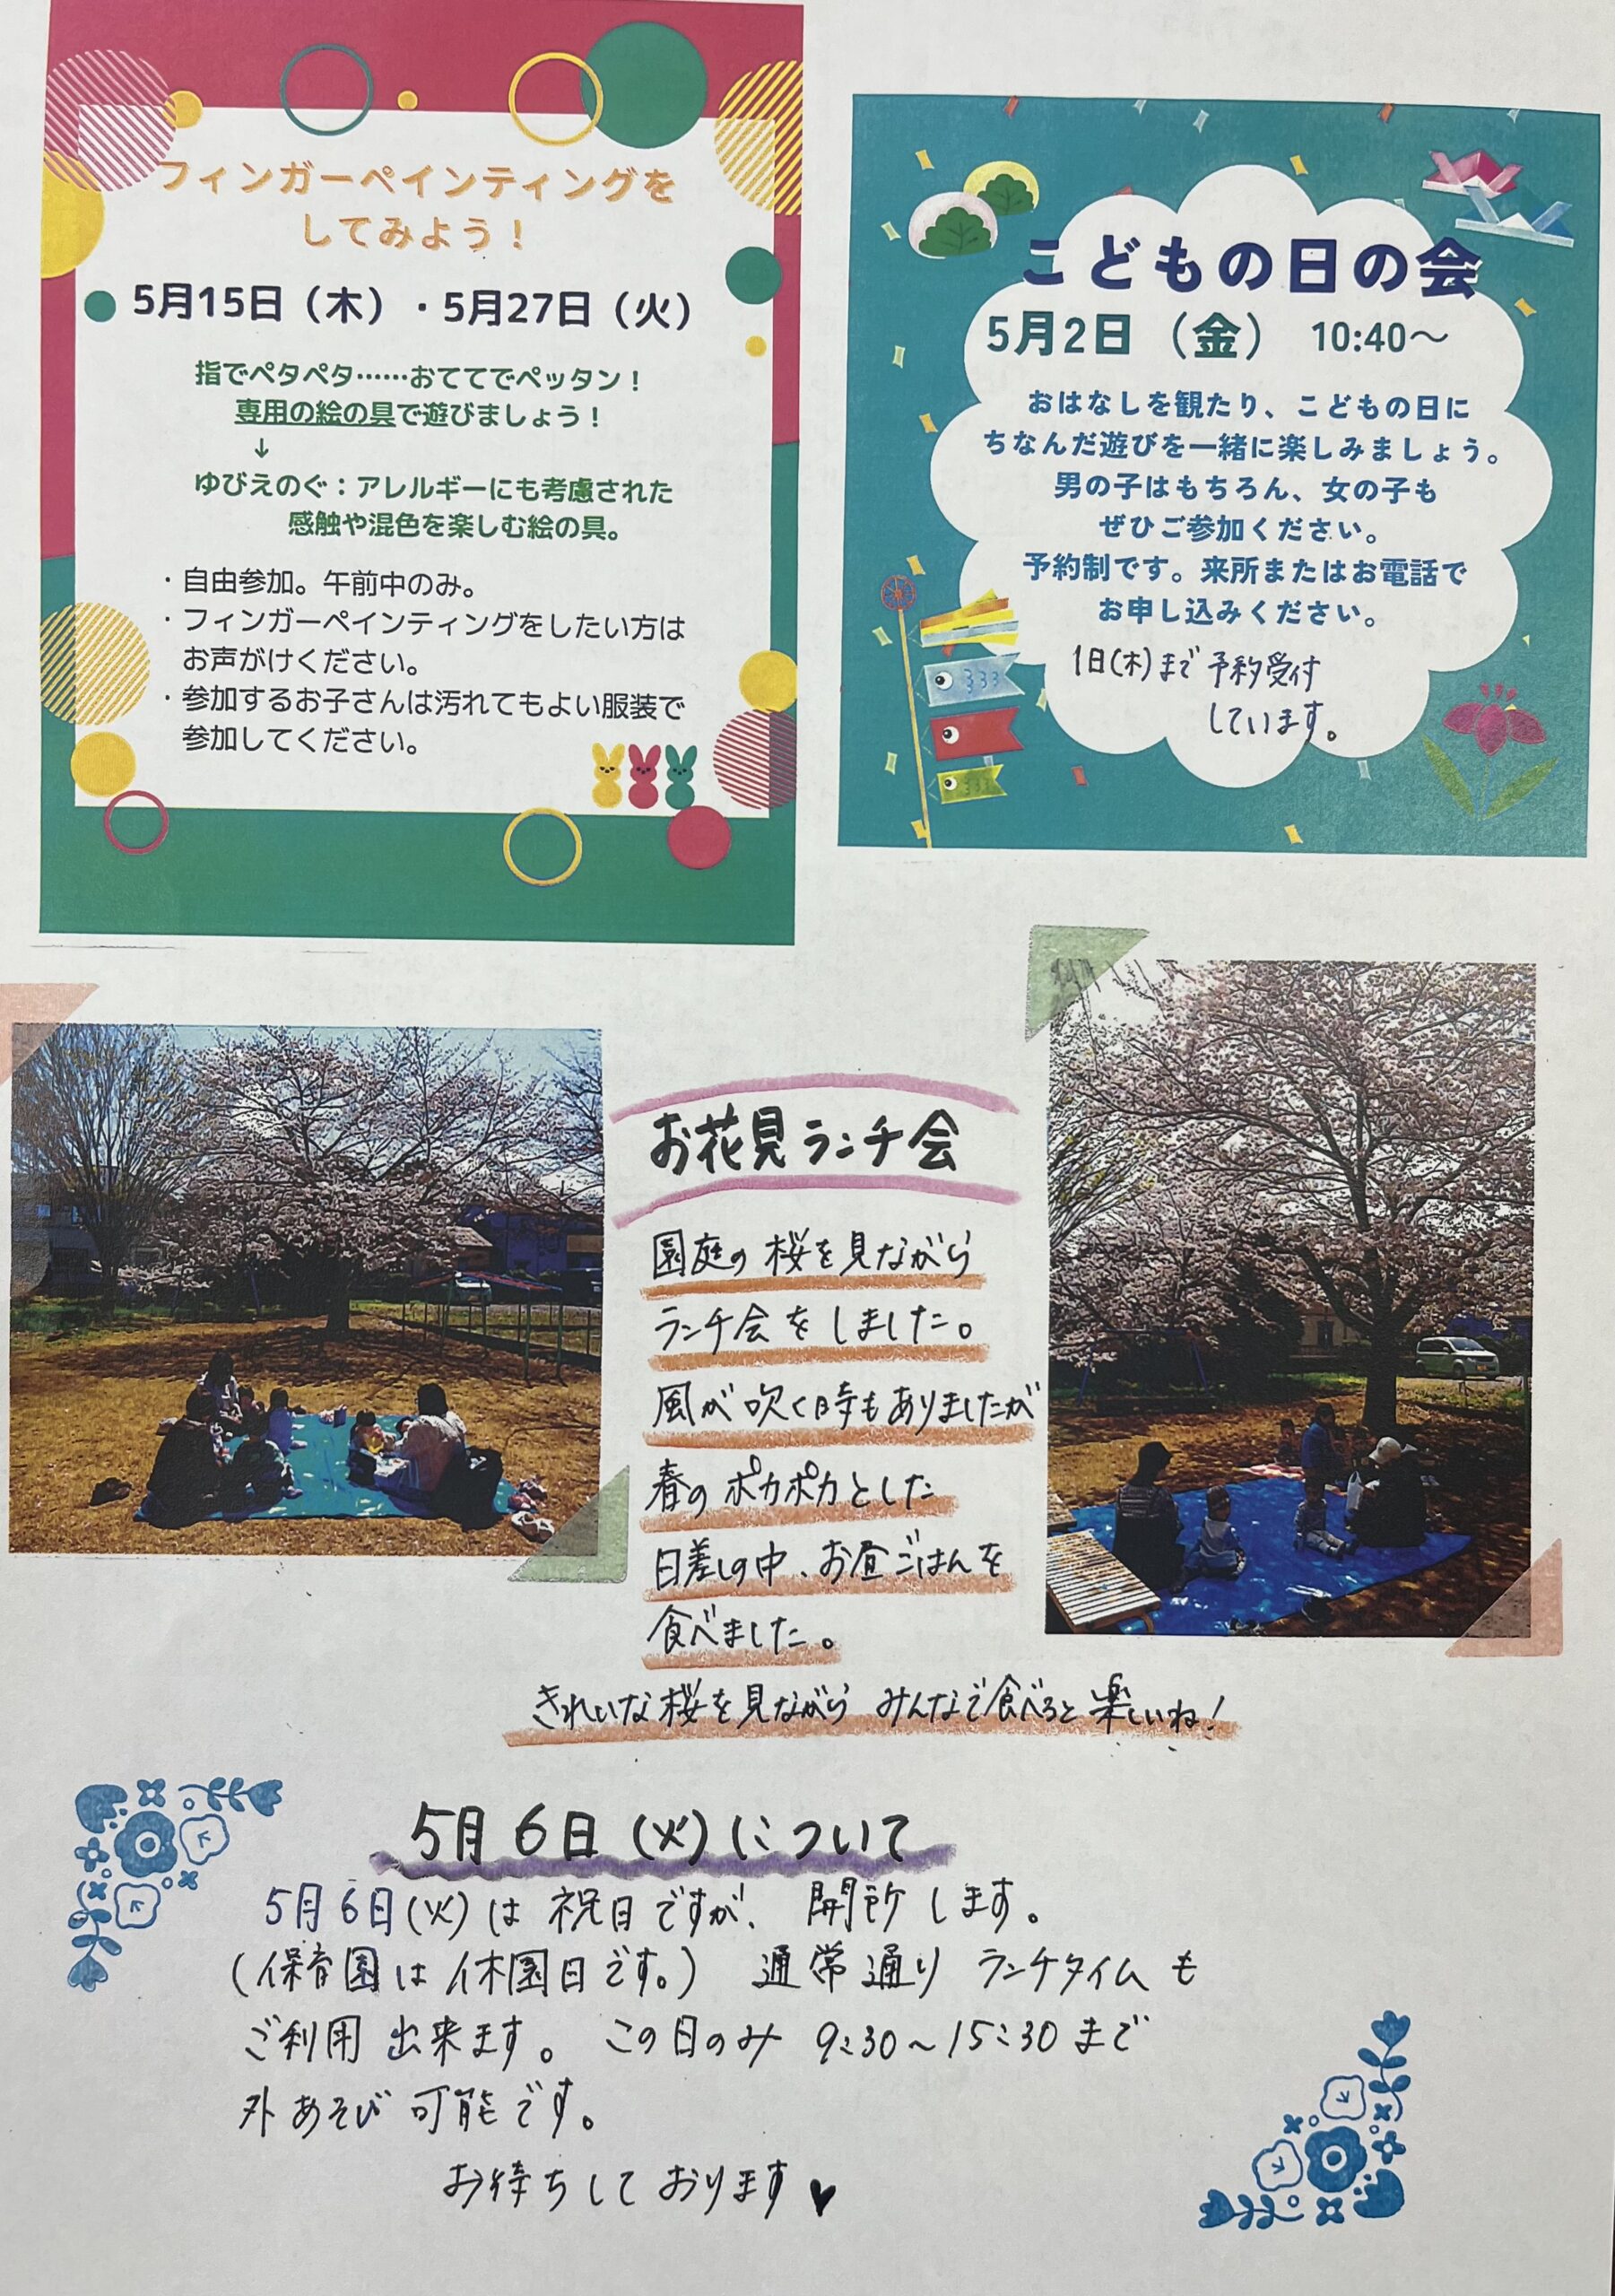 フィンガーペインティングを
してみよう！
5月15日（木）・5月27日（火）
指でペタペタ……おててでペッタン！
専用の絵の具で遊びましょう！
↓
ゆびえのぐ：アレルギーにも考慮された
感触や混色を楽しむ絵の具。
・自由参加。午前中のみ。
・フィンガーペインティングをしたい方は
お声がけください。
・参加するお子さんは汚れてもよい服装で
参加してください。
こどもの日の会
5月2日（金） 10:40～
おはなしを観たり、こどもの日に
ちなんだ遊びを一緒に楽しみましょう。
男の子はもちろん、女の子も
ぜひご参加ください。
予約制です。来所またはお電話で
お申し込みください。
1日(木)まで予約受付
しています。
お花見ランチ会
園庭の桜を見ながら
ランチ会をしました。
風が吹く時もありましたが
春のポカポカとした
日差しの中、お昼ごはんを
食べました。
きれいな桜を見ながら みんなで食べると楽しいね！
5月6日(火)について
5月6日(火)は祝日ですが、開所します。
(保育園は休園日です。) 通常通り ランチタイムも
ご利用出来ます。この日のみ 9:30～15:30まで
外あそび可能です。
お待ちしております♥